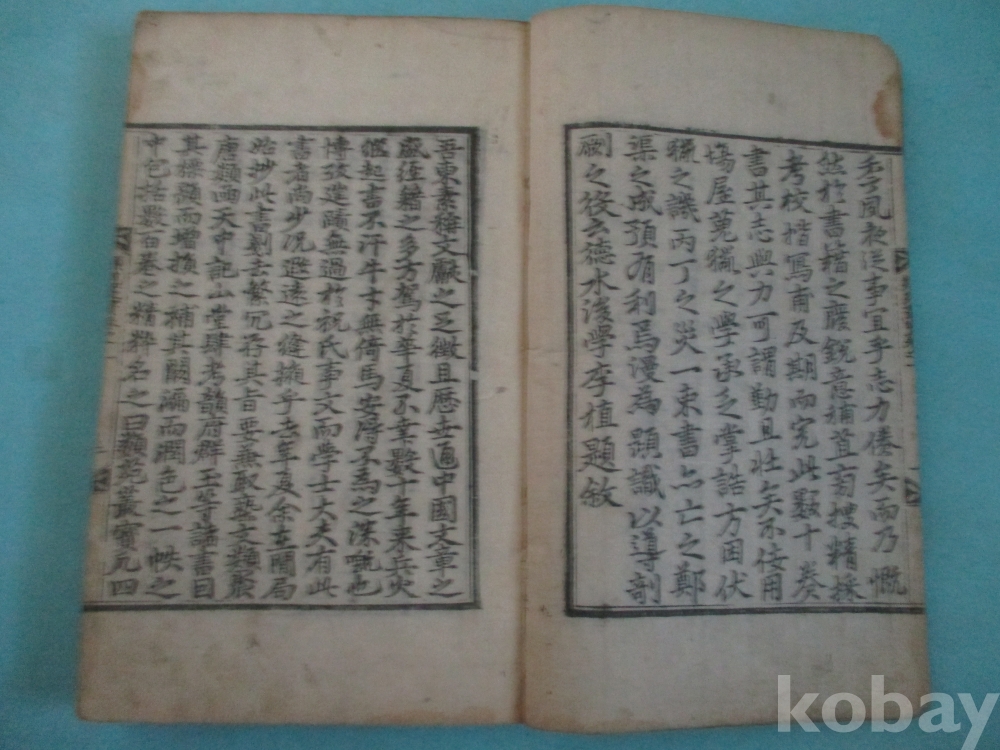 秉夙夜從事宜乎志力倦矣而乃慨
然於書籍之廢銳意補苴旁搜精採
考校楷寫甫及期而完此數十卷
書其志與力可謂勤且壯矣不佞用
塲屋蒐獵之學承乏掌誥方困伏
獵之譏丙丁之災一束書亦亡之鄭
渠之成預有利焉漫爲題識以導剞
劂之後云德水後學李植題敘
吾東素稱文獻之足徵且歷世通中國文章之
盛經籍之多方駕於華夏不幸數十年来兵火
慘起書不汗牛士無倚馬安得不爲之深慨也
博攷遐賾無過於祝氏事文而學士大夫有此
書者尚少况遐遠之縫掖乎去年夏余在
始抄此書刪去繁冗存其旨要兼取藝文類聚
唐類函天中記山堂肆考韻府群玉等諸書目
其標顯而增換之補其闕漏而潤色之一帙之
中包括數百卷之精粹名之曰類苑叢寶凡四
kobay